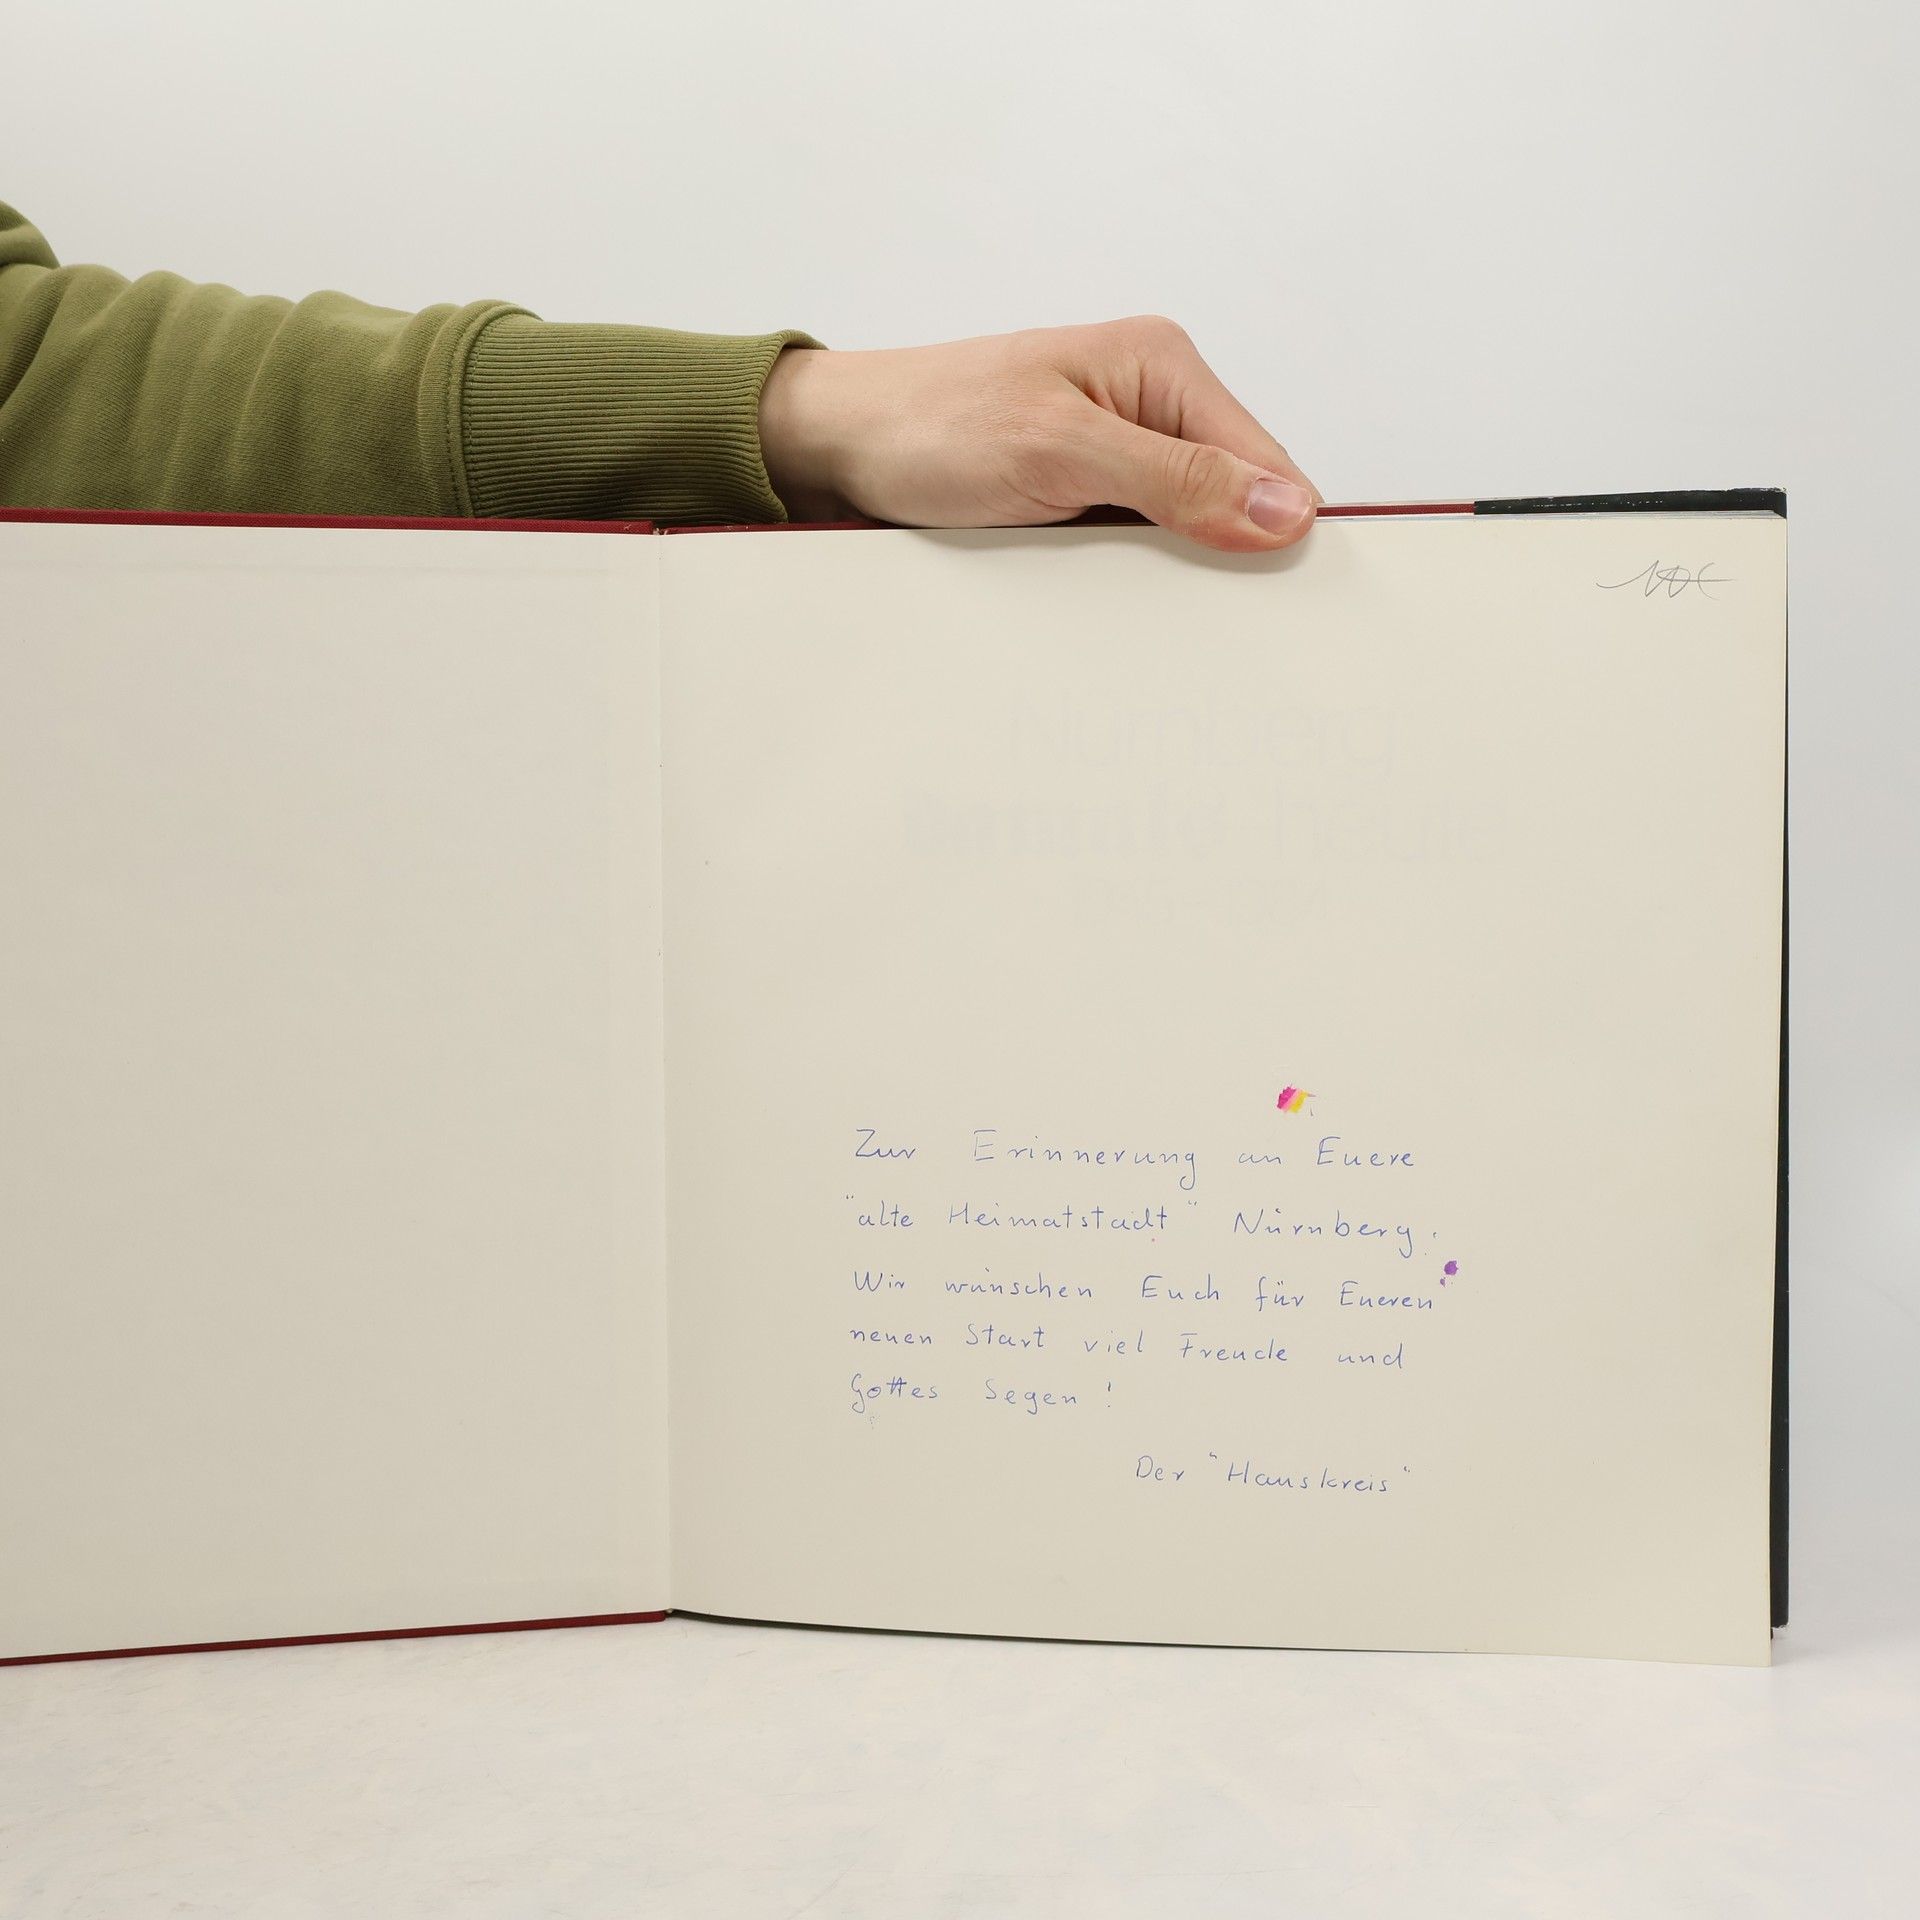 Nürnberg
heute
Zur Erinnerung an Euere
"alte Heimatstadt" Nürnberg.
Wir wünschen Euch für Eueren
neuen Start viel Freude und
Gottes Segen!
Der "Hauskreis"